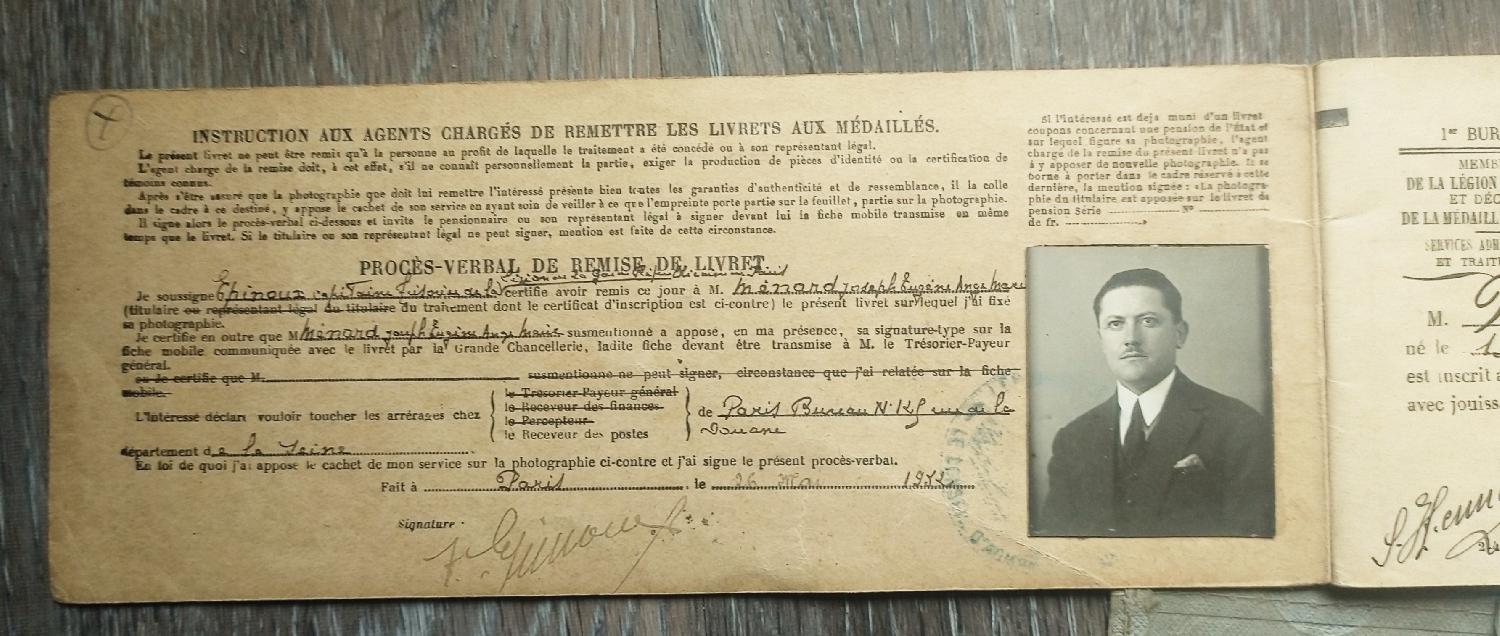 INSTRUCTION AUX AGENTS CHARGÉS DE REMETTRE LES LIVRETS AUX MÉDAILLÉS.
Le présent livret ne peut être remis qu'à la personne au profit de laquelle le traitement a été concédé ou à son représentant légal.
L'agent chargé de la remise doit, à cet effet, s'il ne connaît personnellement la partie, exiger la production de pièces d'identité ou la certification de
témoins connus.
Après s'être assuré que la photographie que doit lui remettre l'intéressé présente bien toutes les garanties d'authenticité et de ressemblance, il la colle
dans le cadre à ce destiné, y appose le cachet de son service en ayant soin de veiller à ce que l'empreinte porte partie sur le feuillet, partie sur la photographie.
Il signe alors le procès-verbal ci-dessous et invite le pensionnaire ou son représentant légal à signer devant lui la fiche mobile transmise en même
temps que le livret. Si le titulaire ou son représentant légal ne peut signer, mention est faite de cette circonstance.
PROCÈS-VERBAL DE REMISE DE LIVRET
Légion de la Garde Républicaine de Paris
Je soussigné Epinoux capitaine Trésorier de la certifie avoir remis ce jour à M. Ménard Joseph Eugène Ange Marie
(titulaire ou représentant légal du titulaire du traitement dont le certificat d'inscription est ci-contre) le présent livret sur lequel j'ai fixé
sa photographie.
Je certifie en outre que M Ménard Joseph Eugène Ange Marie susmentionné a apposé, en ma présence, sa signature-type sur la
fiche mobile communiquée avec le livret par la Grande Chancellerie, ladite fiche devant être transmise à M. le Trésorier-Payeur
général.
ou Je certifie que M. susmentionné ne peut signer, circonstance que j'ai relatée sur la fiche
mobile.
L'intéressé déclare vouloir toucher les arrérages chez
le Trésorier-Payeur général
le Receveur des finances
le Percepteur
le Receveur des postes
de Paris Bureau N° rue de la
Douane
département de la Seine
En foi de quoi j'ai apposé le cachet de mon service sur la photographie ci-contre et j'ai signé le présent procès-verbal.
Fait à Paris, le 26 Mai 1932
Signature :
Si l'intéressé est déjà muni d'un livret
coupons concernant une pension de l'État et
sur lequel figure sa photographie, l'agent
chargé de la remise du présent livret n'a pas
à y apposer de nouvelle photographie. Il se
borne à porter dans le cadre réservé à cette
dernière, la mention signée : «La photogra-
phie du titulaire est apposée sur le livret de
pension Série N°
de fr. »
1er BUR
MEMB
DE LA LÉGION
ET DÉC
DE LA MÉDAILL
SERVICES ADM
ET TRAIT
M.
né le
est inscrit a
avec jouiss